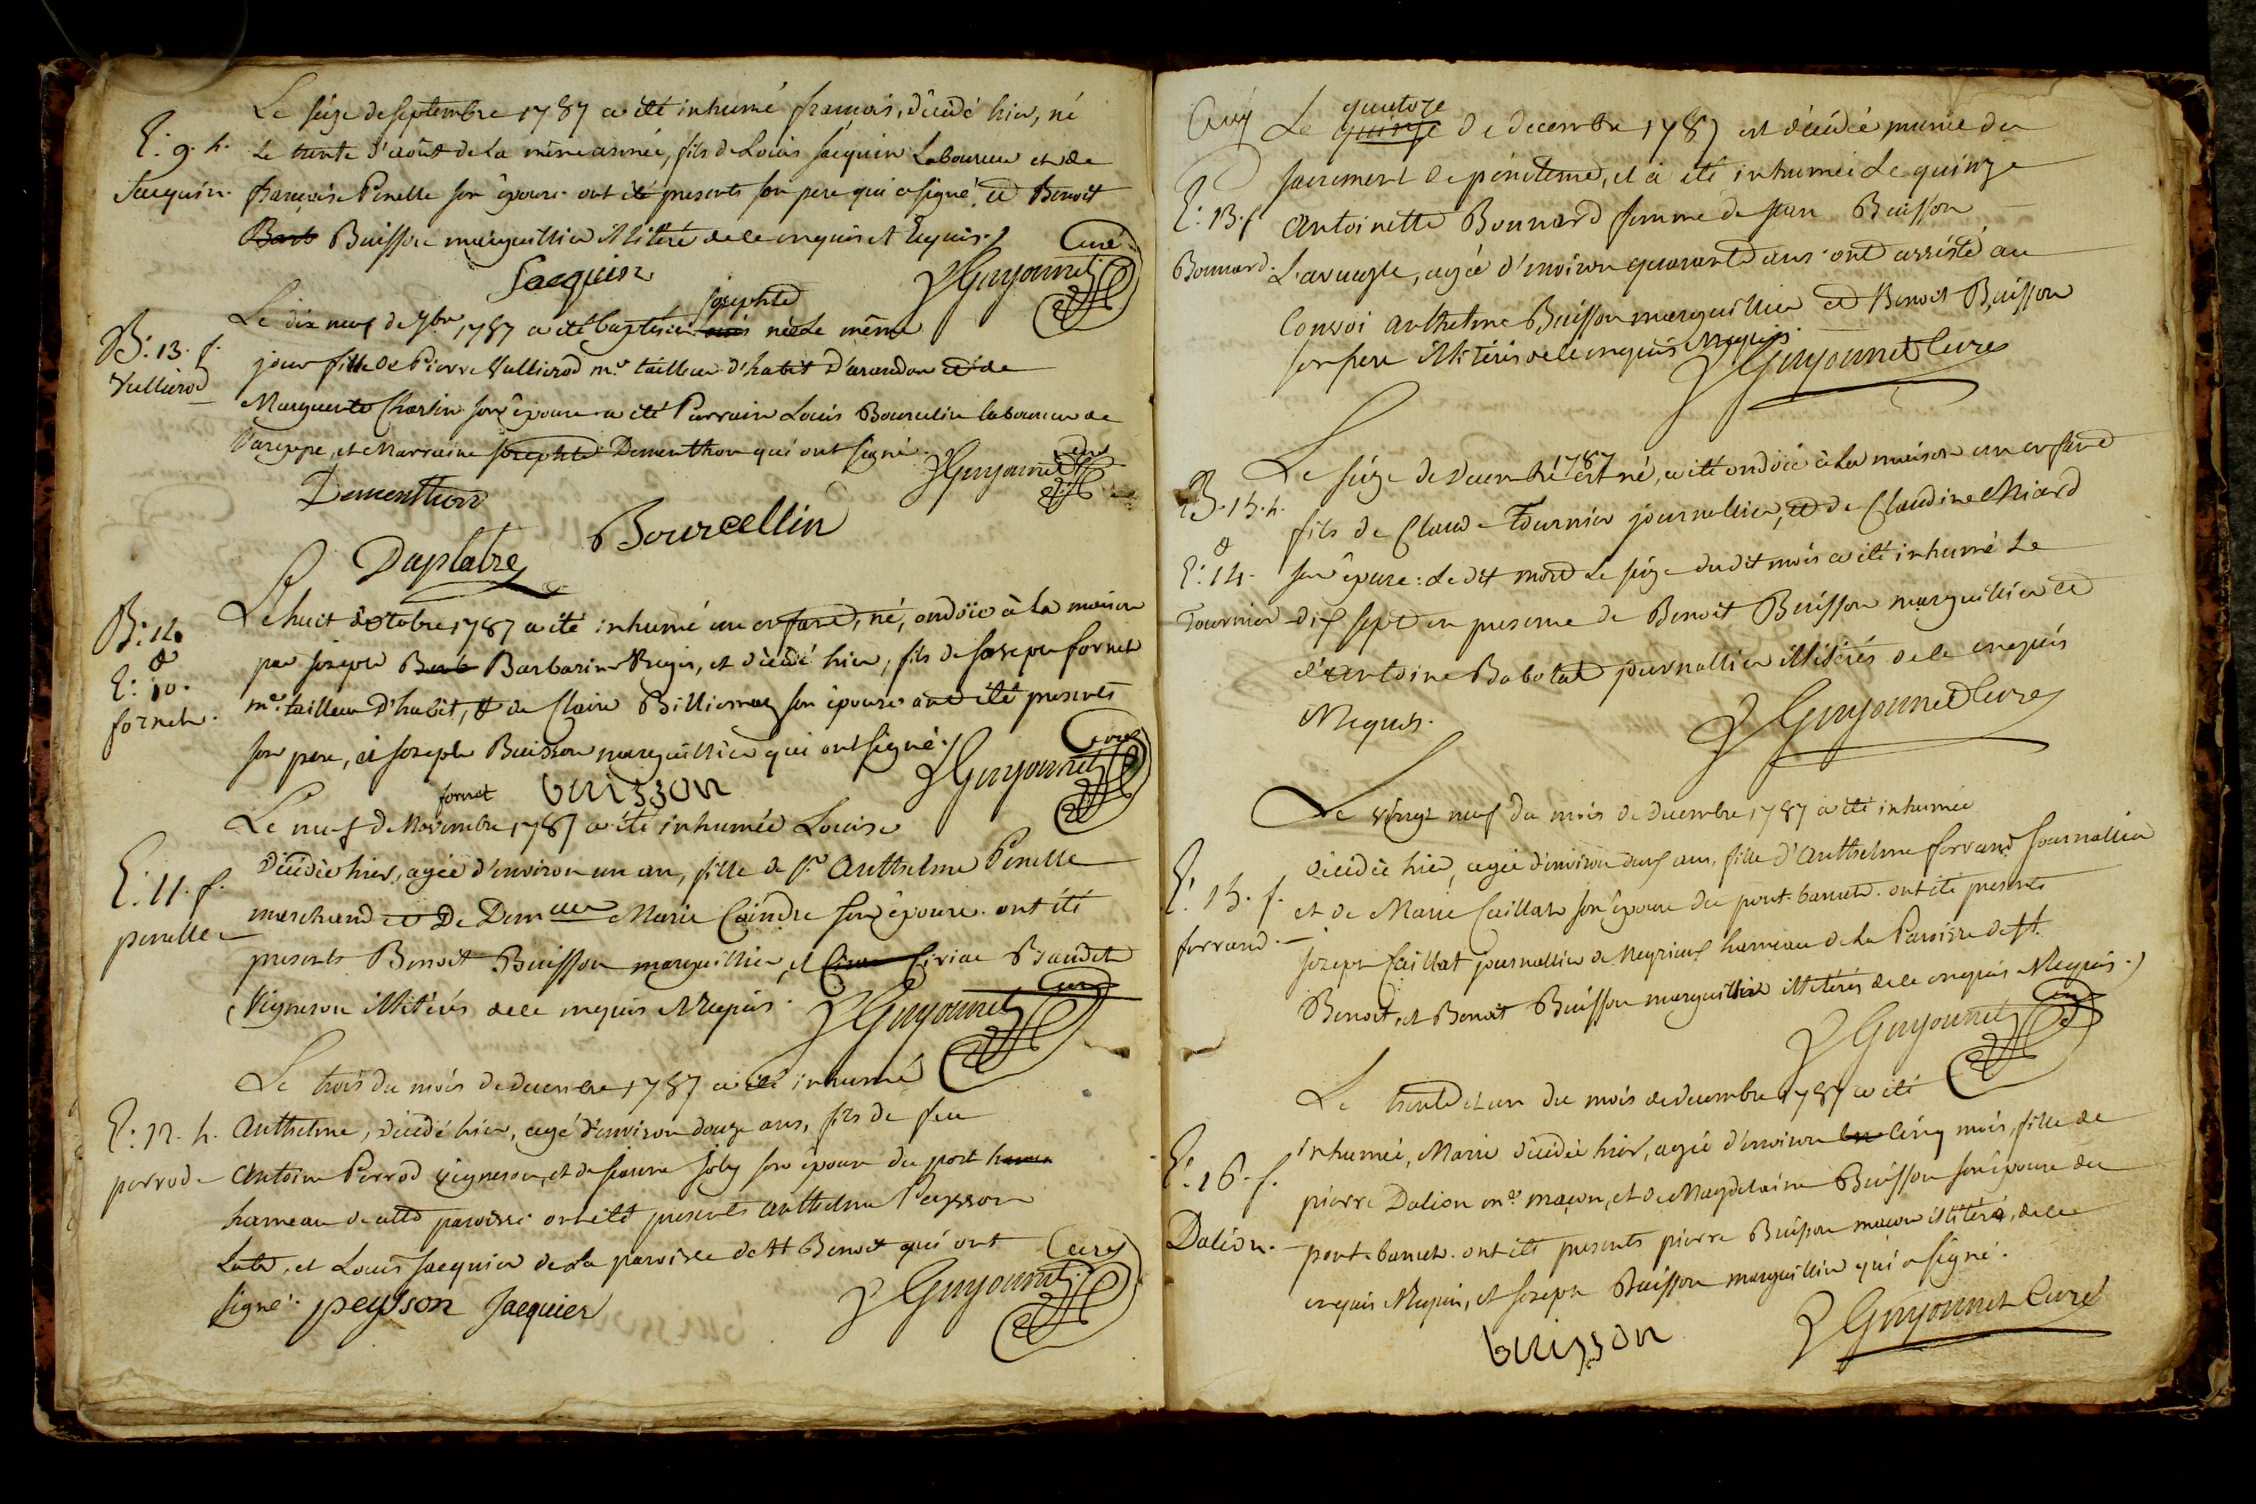 Le seize de septembre 1787 a été inhumé francois, décédé hier, né
E. 9. h. le trente d'août de la même année, fils de Louis Jacquin Laboureur et de
Jacquin. françoise Penelle son épouse ont été presents son pere qui a signé, et Benoit
Barb Buisson marguillier illitéré de ce enquis et requis.
Jacquin
Guyonnet Curé
josephte
Le dix neuf de 7bre 1787 a été baptisée née le même
B. 13. f. jour fille de Pierre Vullierod me tailleur d'habit d'arandon et de
Vullierod
Marguerite Charlin son épouse a été Parrain Louis Bourcelin laboureur de
et Marraine josephte Dementhon qui ont signé. Guyonnet curé
Dementhon
Bourcellin
Duplatre
Le huit d'octobre 1787 a été inhumé un enfant, né, ondoïé à la maison
B. 14. & E. 10. fornet.
par joseph Barb Barbarin Requis, et décédé hier, fils de joseph fornet
me tailleur d'habit, et de Claire son épouse ont été presents
son pere, et joseph Buisson marguillier qui ont signé.
fornet buisson Guyonnet Curé
Le neuf de Novembre 1787 a été inhumée Louise
E. 11. f. décédée hier, agée d'environ un an, fille de Sr. Anthelme Penelle
penelle marchand et De Demlle Marie Caindre son épouse. ont été
presents Benoit Buisson marguillier, et Ciriac Baudet
Vigneron illitérés de ce enquis et Requis. Guyonnet Curé
Le trois du mois de decembre 1787 a été inhumé
E. 12. h. Anthelme, décédé hier, agé d'environ douze ans, fils de feu
perrod Antoine Perrod vigneron, et de jeanne Joly son épouse du port
hameau de cette paroisse ont été presents Anthelme Peysson
et Louis Jacquier de la paroisse de St Benoit qui ont
signé. peysson Jacquier Guyonnet Curé
quatorze
Le quinze de decembre 1787 est décédée munie du
sacrement de pénitence, et a été inhumée le quinze
E. 13. f. Antoinette Bonnard femme de jean Buisson
Bonnard. L'aveugle, agée d'environ quarante ans ont assisté au
Convoi anthelme Buisson marguillier et Benoit Buisson
son pere illitérés de ce enquis Requis.
Guyonnet Curé
Le seize de decembre 1787 est né, a été ondoïé à la maison un enfant
B. 15. h. fils de Claude Tournier journallier, et de Claudine Chiard
& E. 14. son épouse: le dit mort le seize du dit mois a été inhumé le
Tournier dix sept en presence de Benoit Buisson marguillier et
d'antoine Babolat journallier illitérés de ce enquis
Requis. Guyonnet Curé
Le vingt neuf du mois de decembre 1787 a été inhumée
décédée hier, agée d'environ deux ans, fille d'Anthelme ferrand journallier
E. 15. f. et de Marie Caillat son épouse du pont-bancet. ont été presents
ferrand. joseph Caillat journallier de Meyrieux hameau de la Paroisse de St.
Benoit, et Benoit Buisson marguillier illitérés de ce enquis Requis.
Guyonnet Curé
Le trente et un du mois de decembre 1787 a été
inhumée, Marie décédée hier, agée d'environ cinq mois, fille de
E. 16. f. pierre Dalion me maçon, et de Magdelaine Buisson son épouse du
Dalion. pont-bancet. ont été presents pierre Buisson maçon illitéré, de ce
enquis Requis, et joseph Buisson marguillier qui a signé.
buisson Guyonnet Curé